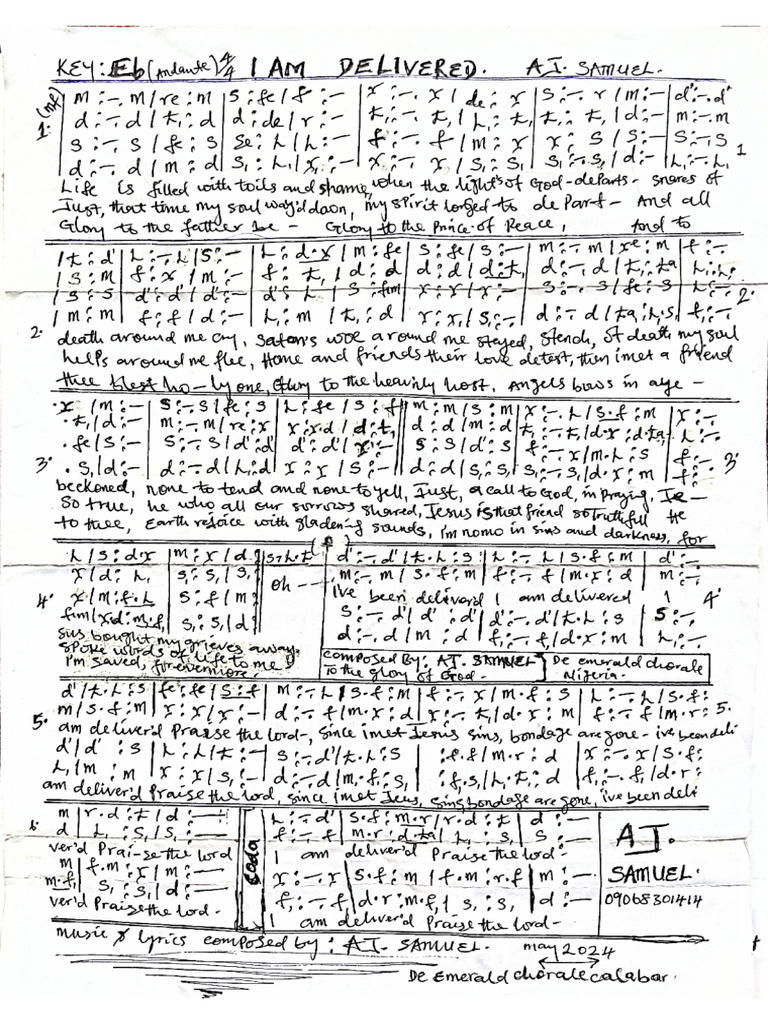 KEY: Eb (Andante) 4/4 I AM DELIVERED. A.J. SAMUEL.
(mf)
1. m :-. m / re : m | s : fe / f :- | r :-. r / de : r | s :-. r / m :- | d' :-. d'
d :-. d / t, : d | d : de / r :- | t, :-. t, / t, : t, | t, :-. t, / d :- | m :-. m
s :-. s / fe : s | se : l / l :- | f :-. f / m : r | r : s / s :- | s :-. s 1
d :-. d / m : d | s, : l, / r, :- | r :-. r / s, : s, | s, :-. s, / d :- | l, :-. l,
Life is filled with toils and shame, when the lights of God - departs - snares of
Just, that time my soul way'd down, my spirit longed to de Part - And all
Glory to the father be - Glory to the Prince of Peace, And to
/ t : d' | l :-. l / s :- | l : d.r / m : fe | s : fe / s :- | m :-. m / re : m | f :-
/ s : m | f : r / m :- | f : t, / d : d | d : d / d : t, | d :-. d / t, : ta, | l, : l,
2.
/ m : m | f : f / d :-
2. death around me cry, Satan's woe around me stayed, Stench, of death my soul
helps around me flee, Home and friends their love detest, then i met a friend
thee blest ho - ly one, Glory to the heavenly host, Angels bows in aye -
. r / m :- | s :-. s / fe : s | l : fe / s : f | m : m / s : m | r :-. l / s.f : m | r :-.
. t, / d :- | m :-. m / re : r | r : r.d / d : t, | d : d / m : d
. fe / s :- | s :-. s / d' : d' | s : s / d' : s | f :-. r / m.l : s | f :-.
3. . s, / d :- | d :-. d / l, : d | r : r / s :- | d : d / s, : s, | s, :-. s, / d.r : m | f :-. 3.
beckoned, none to tend and none to yell, Just, a call to God, in praying, Je -
So true, he who all our sorrows shared, Jesus is that friend so truthful He
to thee, Earth rejoice with gladening sounds, I'm nomo in sins and darkness, for
l / s : d.r | m : r / d | s.l.t | d' :-. d' / t.l : s | l :-. l / s.f : m
r / d : l, | s, : s, / s, | oh -- | m :-. m / s.f : m | f :-. f / m.r : d | m :-.
4. r / m : f.l | s : f / m | i've been deliver'd I am delivered 1 4.
fim / r.d : m.f | s, : s, / d | s :-. d' / d' : d' | d :-. d' / t.l : s | s :-.
sus bought my grieves away. | d :-. d / m : d | f, :-. f, / d.r : m | l, :-.
Spoke words of life to me!
I'm saved forevermore.
composed By: A.J. SAMUEL
To the glory of God.
De emerald chorale
Nigeria.
d' / t.l : s | fe : fe / s : f | m :-. l / s.f : m | f :-. r / m.f : s | l :-. l / s.f :
5. m / s.f : m | r : r / r :- | d :-. f / m.r : d | r :-. t, / d.r : m | f :-. f / m.r : 5.
am deliver'd Praise the Lord -, since i met Jesus sins, bondage are gone - ive been deli
d' / d' : s | l : l / t :- | s :-. d' / t.l : s | : f.f / m.r : d | r :-. r / s.f :
l, / m : m | r : r / s, :- | d :-. d / m.f, : s, | : f, s, / l, t, : d | f, :-. f, / d.r :
am deliver'd Praise the Lord, since i met Jesus, sins bondage are gone, i've been deli
6 m | r.d : t, / d :- | l :-. d' | s.f : m.r / r.d : t, | d :-
d | l, : s, / s, :- | f :-. f | m.r : d.ta, / l, : s, | s :-
ver'd Prai-se the Lord | I am deliver'd Praise the Lord -
Coda
m | f.m : r / m :- | r :-. r | s.f : m / f.m : r.f | m :-
m.f, | s, : s, / d :- | f, :-. f, | d.r : m.f, / s, : s, | d :-
ver'd Praise the Lord - | I am deliver'd Praise the Lord -
A.J.
SAMUEL.
09068301414
music & lyrics composed by: A.J. SAMUEL. may 2024
De Emerald chorale calabar.